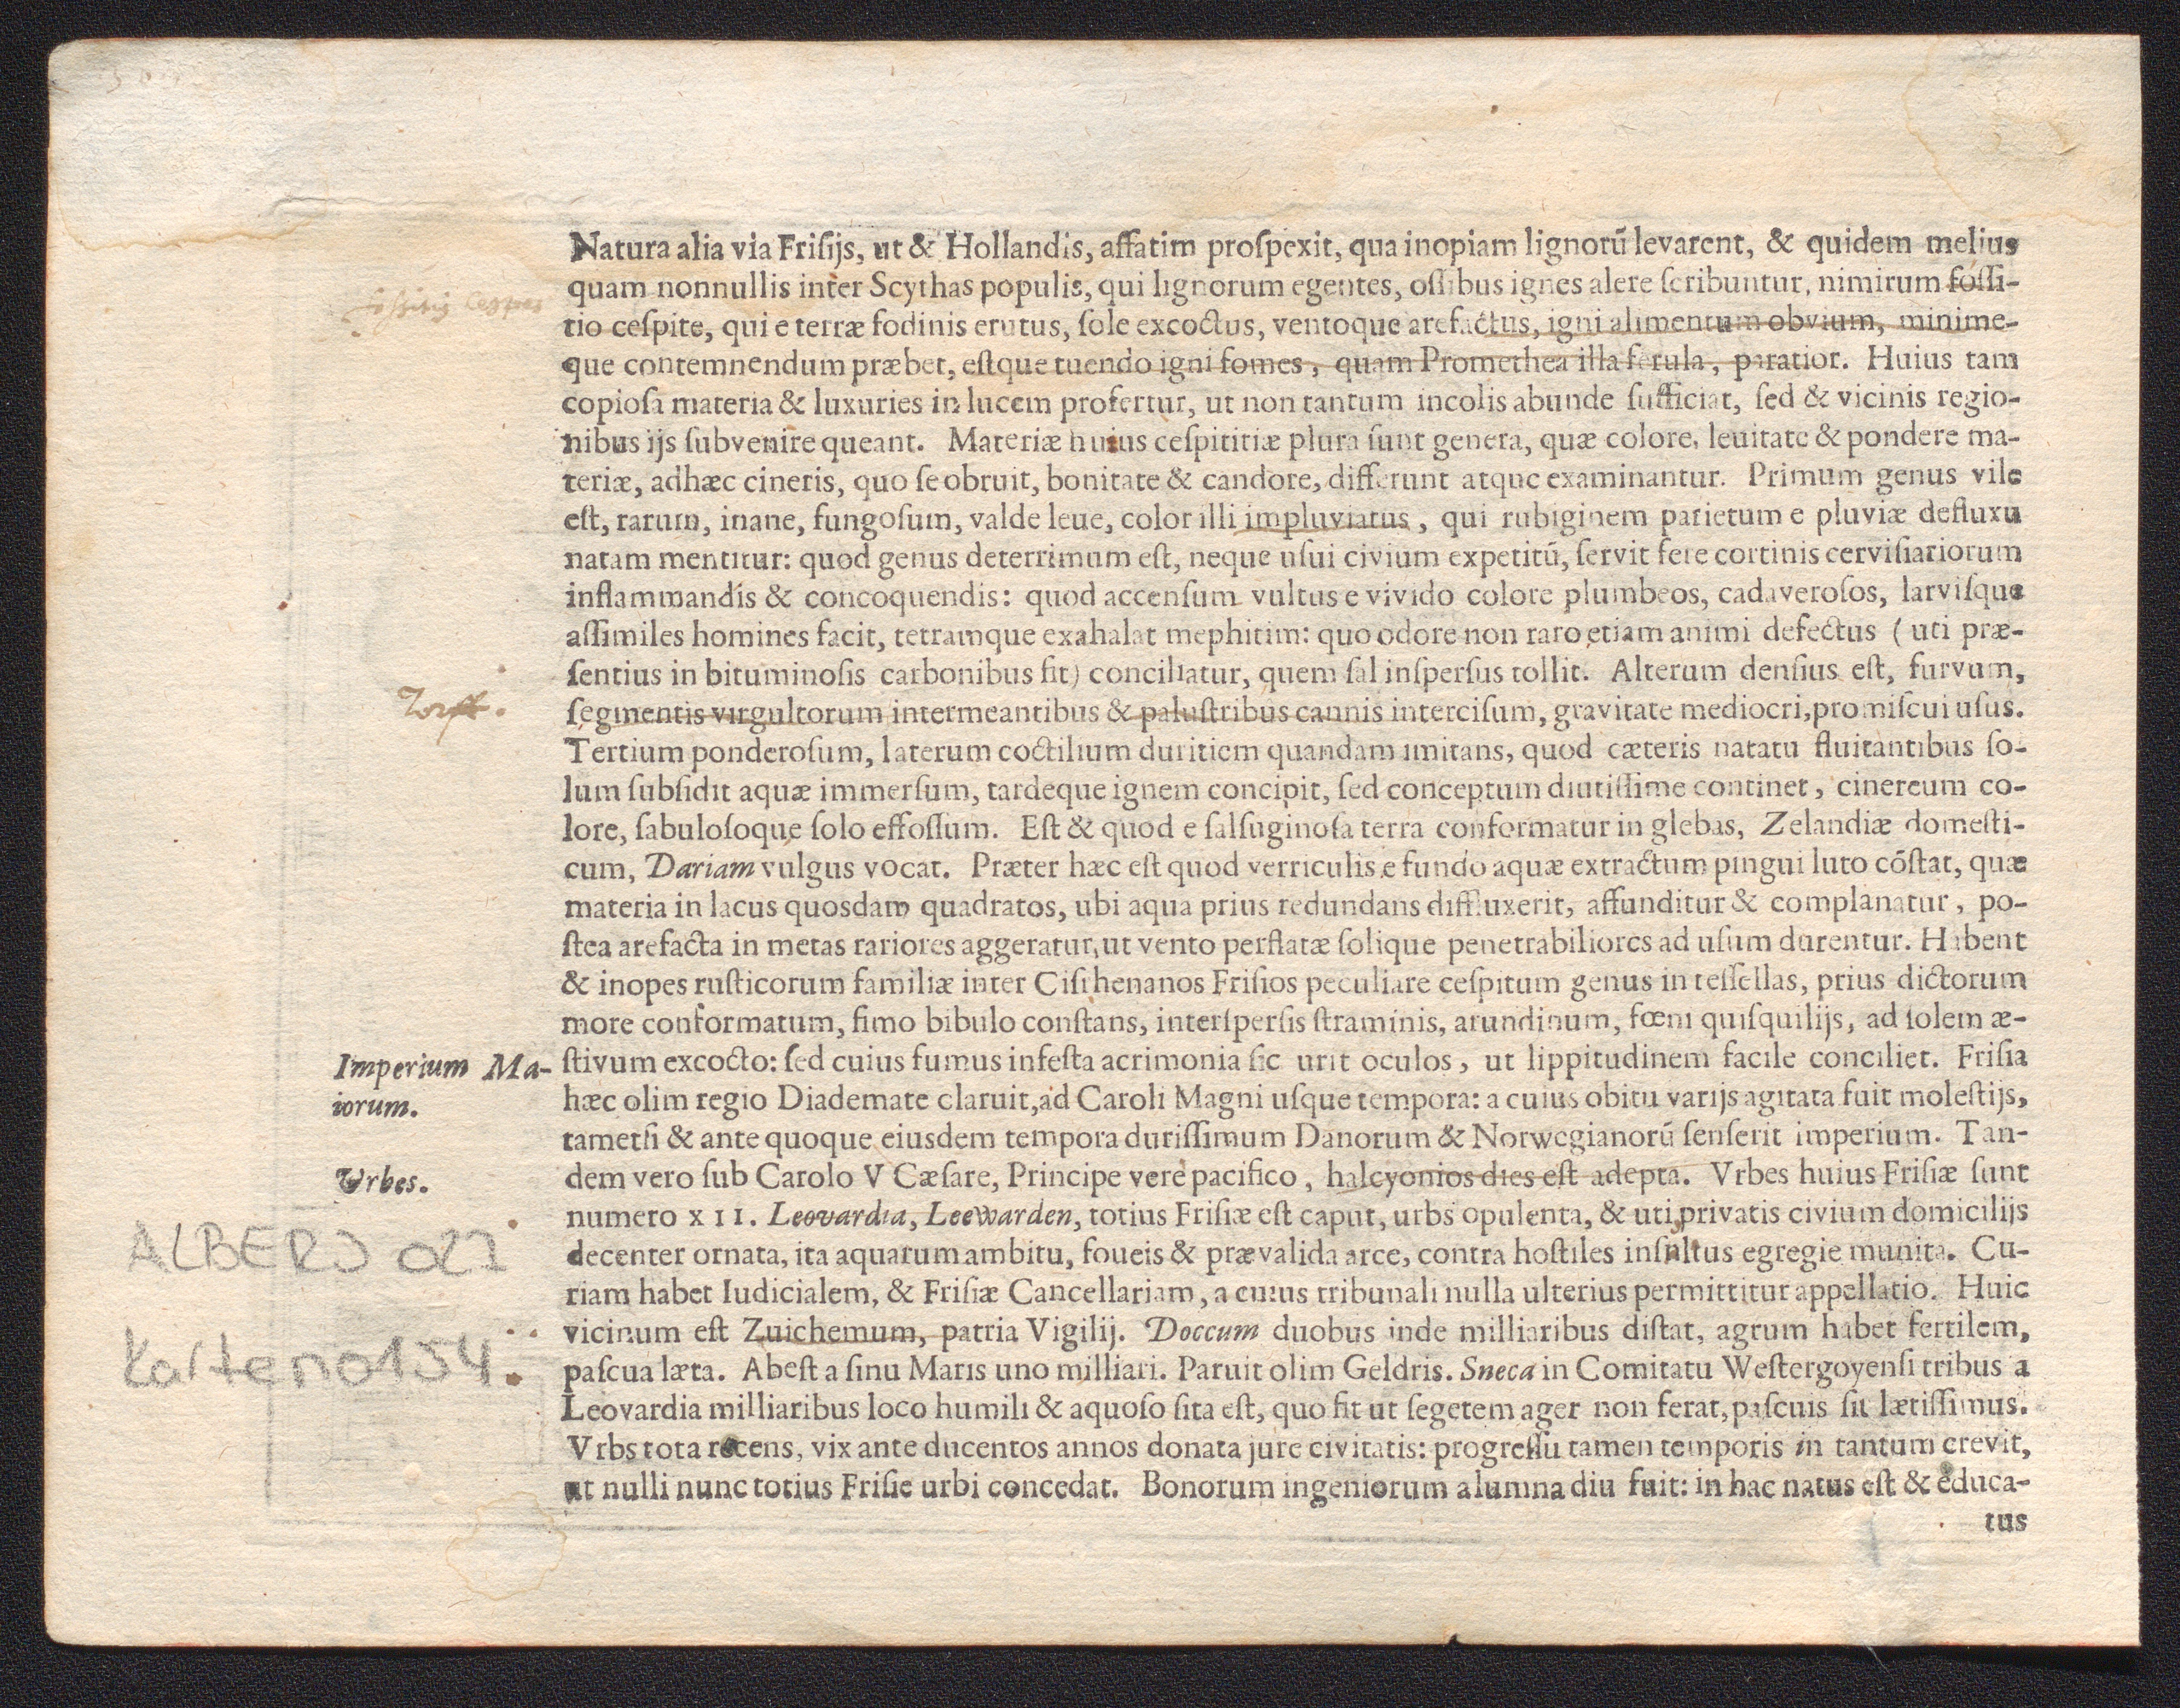 Natura alia via Friſijs, ut & Hollandis, affatim proſpexit, qua inopiam lignorũ levarent, & quidem melius
quam nonnullis inter Scythas populis, qui lignorum egentes, oſſibus ignes alere ſcribuntur, nimirum foſſi-
tio ceſpite, qui e terræ fodinis erutus, ſole excoctus, ventoque arefactus, igni alimentum obvium, minime-
que contemnendum præbet, eſtque tuendo igni fomes, quam Promethea illa ferula, paratior. Huius tam
copioſa materia & luxuries in lucem profertur, ut non tantum incolis abunde ſufficiat, ſed & vicinis regio-
nibus ijs ſubvenire queant. Materiæ huius ceſpititiæ plura ſunt genera, quæ colore, leuitate & pondere ma-
teriæ, adhæc cineris, quo ſe obruit, bonitate & candore, differunt atque examinantur. Primum genus vile
eſt, rarum, inane, fungoſum, valde leue, color illi impluviatus, qui rubiginem parietum e pluviæ defluxu
natam mentitur: quod genus deterrimum eſt, neque uſui civium expetitũ, ſervit fere cortinis cerviſiariorum
inflammandis & concoquendis: quod accenſum vultus e vivido colore plumbeos, cadaveroſos, larviſque
aſſimiles homines facit, tetramque exahalat mephitim: quo odore non raro etiam animi defectus (uti præ-
ſentius in bituminoſis carbonibus fit) conciliatur, quem ſal inſperſus tollit. Alterum denſius eſt, furvum,
Torff.
ſegmentis virgultorum intermeantibus & paluſtribus cannis interciſum, gravitate mediocri, promiſcui uſus.
Tertium ponderoſum, laterum coctilium duritiem quandam imitans, quod cæteris natatu fluitantibus ſo-
lum ſubſidit aquæ immerſum, tardeque ignem concipit, ſed conceptum diutiſſime continet, cinereum co-
lore, ſabuloſoque ſolo effoſſum. Eſt & quod e ſalſuginoſa terra conformatur in glebas, Zelandiæ domeſti-
cum, Dariam vulgus vocat. Præter hæc eſt quod verriculis e fundo aquæ extractum pingui luto cõſtat, quæ
materia in lacus quosdam quadratos, ubi aqua prius redundans diffluxerit, affunditur & complanatur, po-
ſtea arefacta in metas rariores aggeratur, ut vento perflatæ ſolique penetrabiliores ad uſum durentur. Habent
& inopes ruſticorum familiæ inter Ciſrhenanos Friſios peculiare ceſpitum genus in teſſellas, prius dictorum
more conformatum, fimo bibulo conſtans, interſperſis ſtraminis, arundinum, fœni quiſquilijs, ad ſolem æ-
Imperium Ma-
iorum.
ſtivum excocto: ſed cuius fumus infeſta acrimonia ſic urit oculos, ut lippitudinem facile conciliet. Friſia
hæc olim regio Diademate claruit, ad Caroli Magni uſque tempora: a cuius obitu varijs agitata fuit moleſtijs,
tametſi & ante quoque eiusdem tempora duriſſimum Danorum & Norwegianorũ ſenſerit imperium. Tan-
Vrbes.
dem vero ſub Carolo V Cæſare, Principe verè pacifico, halcyonios dies eſt adepta. Vrbes huius Friſiæ ſunt
numero XII. Leovardia, Leewarden, totius Friſiæ eſt caput, urbs opulenta, & uti privatis civium domicilijs
decenter ornata, ita aquarum ambitu, foueis & prævalida arce, contra hoſtiles inſultus egregie munita. Cu-
riam habet Iudicialem, & Friſiæ Cancellariam, a cuius tribunali nulla ulterius permittitur appellatio. Huic
vicinum eſt Zuichemum, patria Vigilij. Doccum duobus inde milliaribus diſtat, agrum habet fertilem,
paſcua læta. Abeſt a ſinu Maris uno milliari. Paruit olim Geldris. Sneca in Comitatu Weſtergoyenſi tribus a
Leovardia milliaribus loco humili & aquoſo ſita eſt, quo fit ut ſegetem ager non ferat, paſcuis ſit lætiſſimus.
Vrbs tota recens, vix ante ducentos annos donata jure civitatis: progreſſu tamen temporis in tantum crevit,
ut nulli nunc totius Friſie urbi concedat. Bonorum ingeniorum alumna diu fuit: in hac natus eſt & educa-
tus
ALBERJ 027
Karten0154.